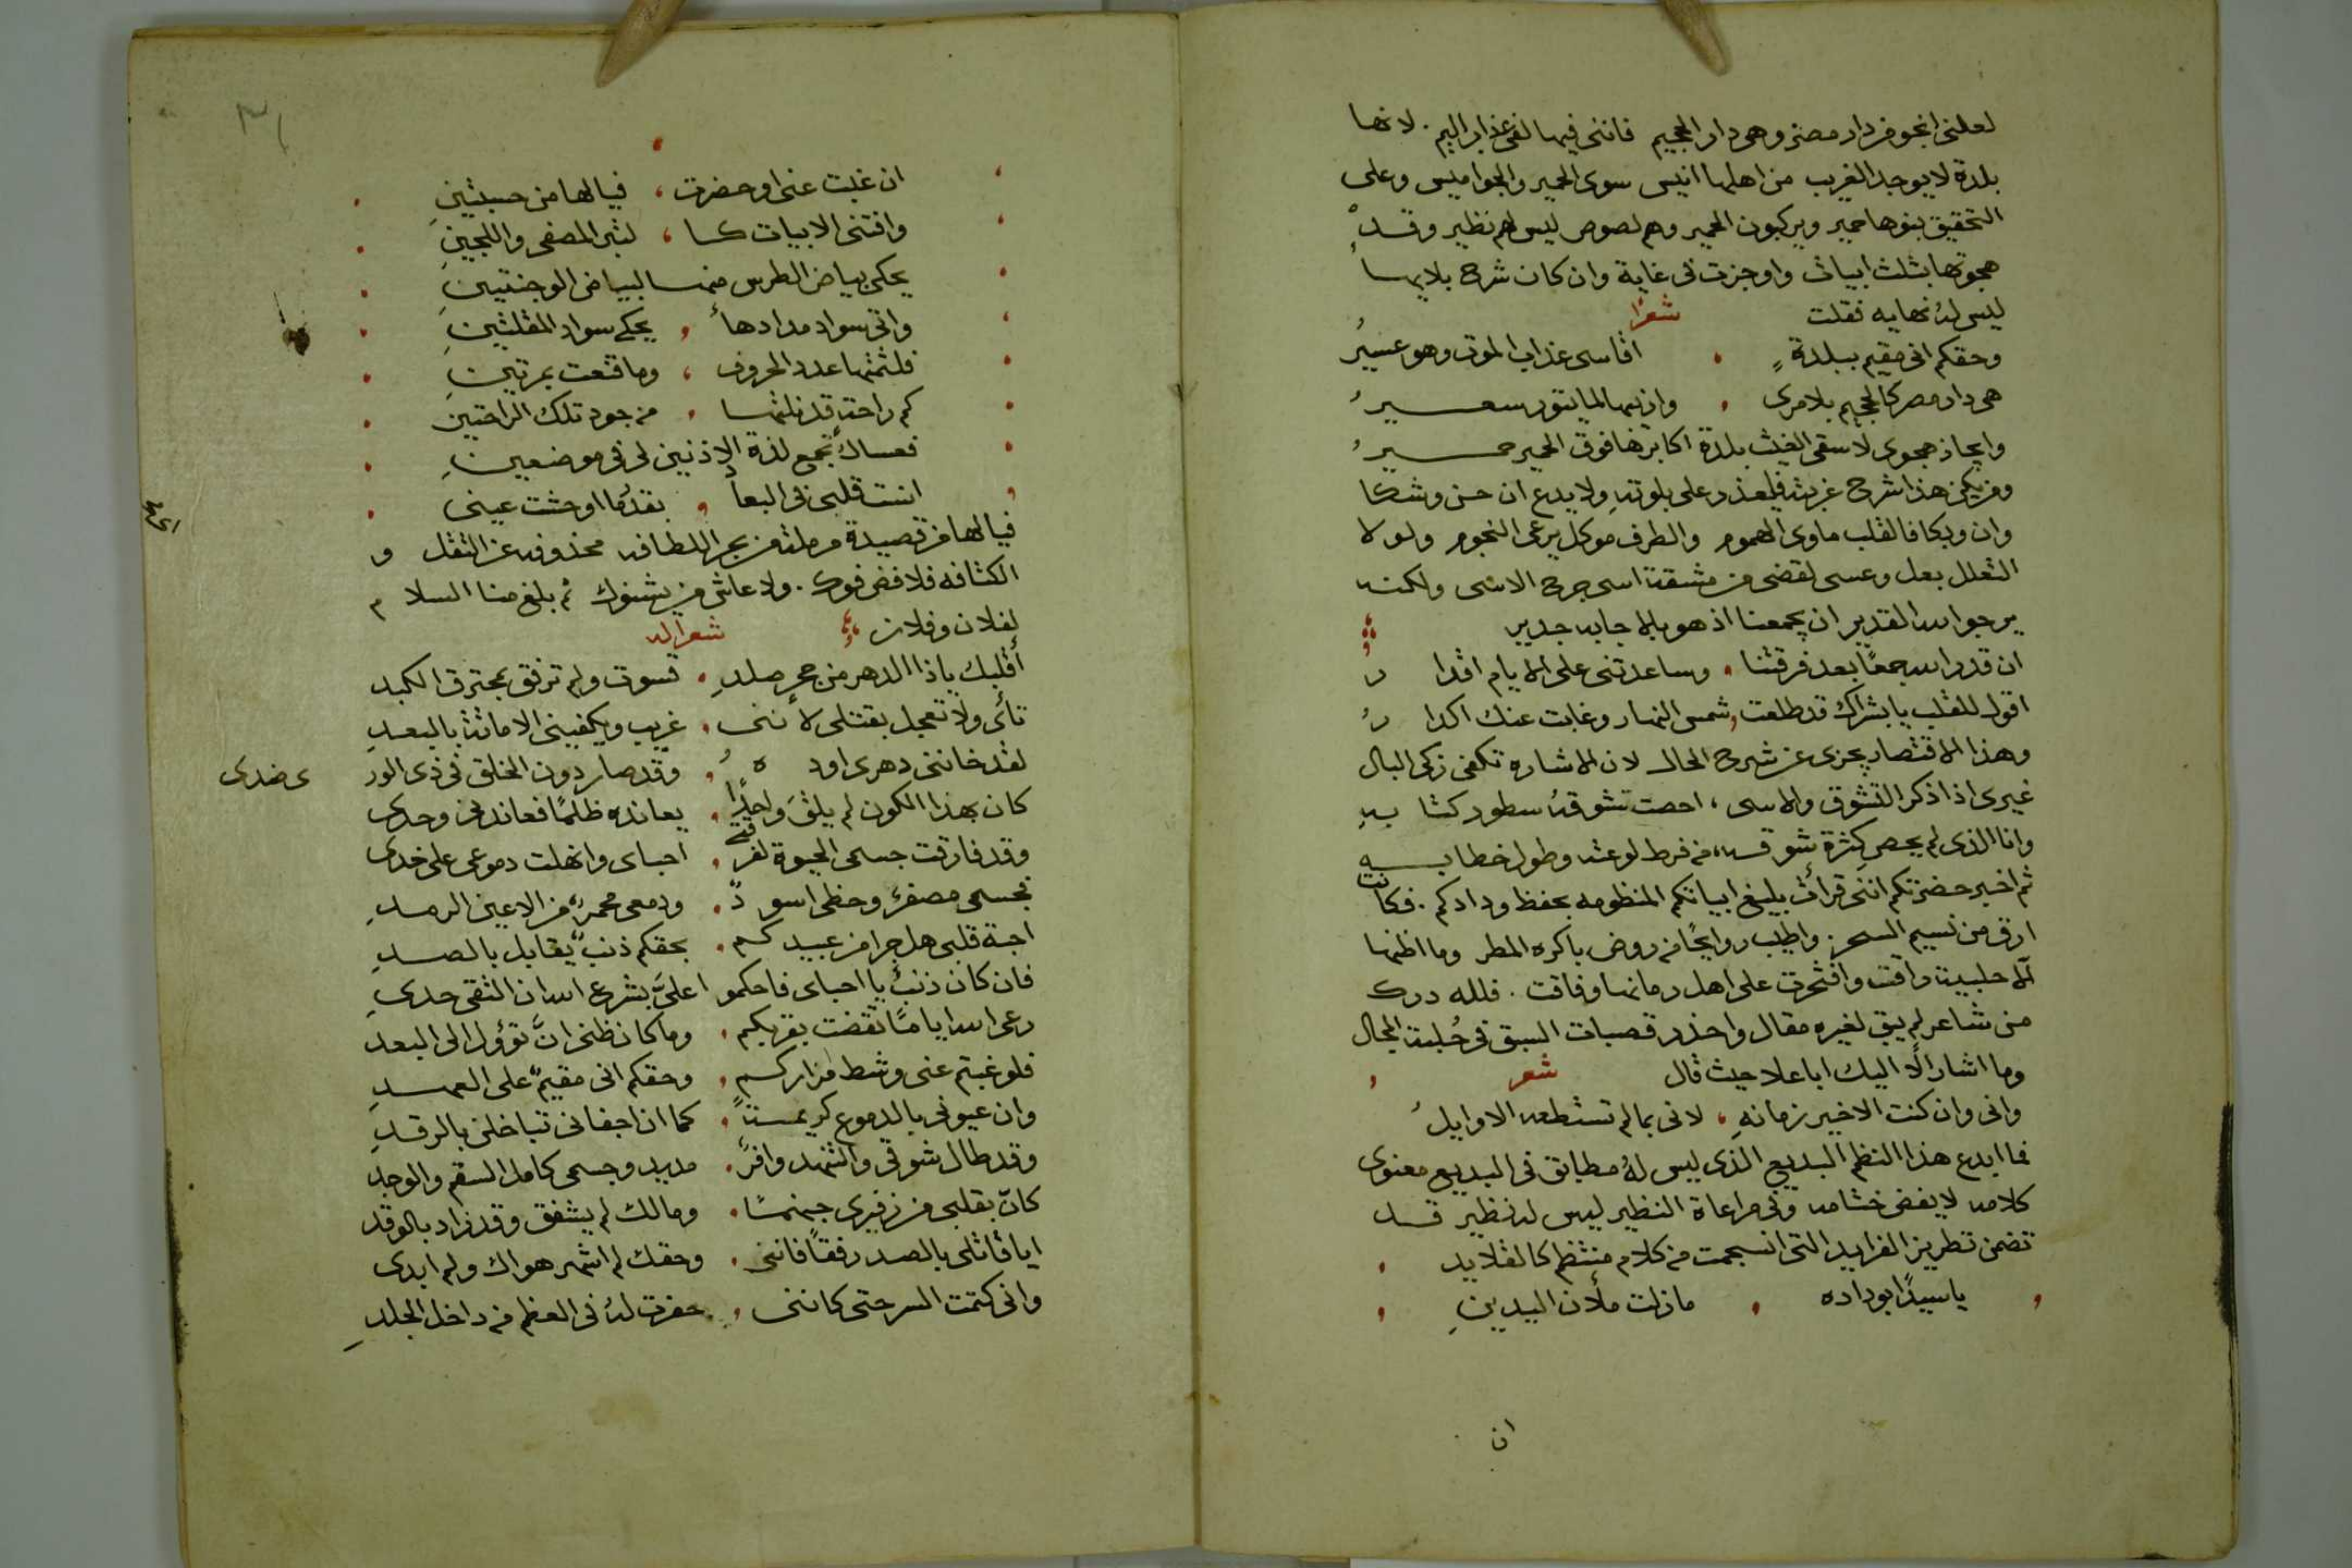 لعلنى انجو من دار مصر وهى دار الجحيم فاننى فيها لفى عذاب اليم . لانها
بلدة لا يوجد الغريب من اهلها انيس سوى الحمير والجواميس وعلى
التحقيق بنوها حمير ويركبون الحمير وهم لصوص ليس لهم نظير وقد
هجوتها بثلث ابيات واوجزت فى غاية وان كان شرح بلايها
ليس له نهايه فقلت شعرا
وحقكم انى مقيم ببلدة اقاسى عذاب الموت وهو عسير
هى دار مصر كالجحيم بلا مرى وان بها لما يتور سعير
وايجاز هجوى لا سقى الغيث بلدة اكابرها فوق الحمير حمير
ومن يكن هذا شرح غربته فليعذر على بلوته ولا بدع ان حن وشكا
وان وبكا فالقلب ماوى الهموم والطرف موكل يرعى النجوم ولولا
التعلل بعل وعسى لقضى من مشقة اسى جرح الاسى ولكنه
يرجو الله القدير ان يجمعنا اذ هو بالاجابه جدير
ان قدر الله جمعا بعد فرقتنا وساعدتنى على الايام اقدار
اقول للقلب يا بشراك قد طلعت شمس النهار وغابت عنك اكدار
وهذا الاقتصار يجزى عن شرح الحال لان الاشاره تكفى زكى البال
غيرى اذا ذكر التشوق والاسى ، احصت تشوقه سطور كتابه
وانا الذى لم يحص كثرة شوقه من فرط لوعته وطول خطابه
ثم اخبر حضرتكم اننى قرأت بليغ ابياتكم المنظومه بحفظ ودادكم . فكانت
ارق من نسيم السحر . واطيب روايحًا من روض باكره المطر وما اظنها
الا حلبيت راقت وافتخرت على اهل زمانها وفاقت . فلله درك
من شاعر لم يبق لغيره مقال واخذ قصبات السبق فى حُلبة المجال
وما اشار الا اليك ابا علا حيث قال شعر
وانى وان كنت الاخير زمانه ، لاتى بما لم تستطعه الاوايل
فما ابدع هذا النظم البديع الذى ليس له مطابق فى البديع معنوى
كلامه لا يفض ختامه وفى مراعاة النظير ليس له نظير قد
تضمن تطريز الفرايد التى انسجمت من كلام منتظم كالقلايد
يا سيدًا بوداده مازلت ملأن اليدين
ان
٣١
ان غبت عنى او حضرت ، فيالها من حسنتين
وافتنى الابيات كا ، لتبر المصفى واللجين
يحكى بياض الطرس منها لبياض الوجنتين
واتى سواد مدادها يحكى سواد المقلتين
فلثمتها عدد الحروف ، وما قنعت بمرتين
كم راحة قد نلتها من جود تلك الراحتين
فعساك تجمع لذة الاذنين لى فى موضعين
انست قلبى فى البعاد بقدر ما اوحشت عينى
فيالها من قصيدة رملت من بحر اللطافه محذوفه عن الثقل و
الكثافه فلا فض فوك . ولا عاش من يشنوك ثم بلغ منا السلام
لفلان وفلان شعرا له
أقلبك يا ذا الدهر من حجر صلد قسوت ولم ترفق بمحترق الكبد
تأنى ولا تعجل بقتلى لاننى غريب ويكفينى الاماتة بالبعد
لقد خاننى دهرى اوده وقد صار دون الخلق فى ذى الورى ضدى
كان بهذا الكون لم يلق واحدًا يعانده ظلمًا فعاندنى وحدى
وقد فارقت جسمى الحيوة لفرقة احباى وانهلت دموعى على خدى
فجسمى مصفر وحظى اسود ودمعى محمر من الاعين الرمد
احبة قلبى هل جرا من عبيدكم بحقكم ذنب يقابل بالصد
فان كان ذنب يا احباى فاحكموا علىّ بشرع الله ان التقى حدى
رعى الله اياما تقضت بقربكم وما كان ظنى انّ تؤول الى البعد
فلو غبتم عنى وشط مزاركم وحقكم انى مقيم على العهد
وان عيونى بالدموع كريمة كما ان اجفانى تباخلن بالرقد
وقد طال شوقى والتنهد وافر مديد وجسمى كامل السقم والوجد
كانّ بقلبى من زفيرى جهنما ومالك لم يشفق وقد زاد بالوقد
ايا قاتلى بالصد رفقا فاننى وحقك لم اشهر هواك ولم ابدى
وانى كتمت السر حتى كاننى حفرت له فى العظم من داخل الجلد